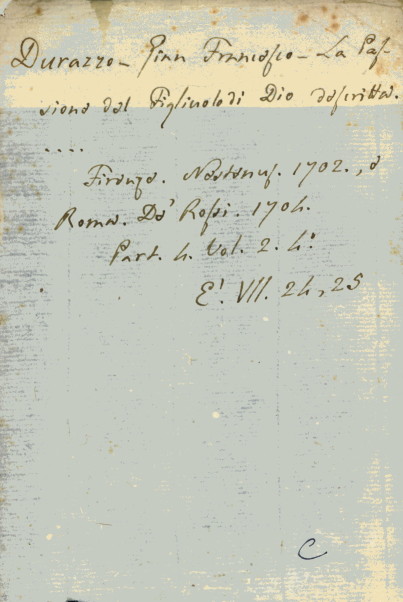 Durazzo - Gian Francesco - La Pas-
sione del Figliuolo di Dio descritta.
....
Firenze. Nestenus. 1702., e
Roma. De' Rossi. 1704.
Part. 4. Vol. 2. 4º
E'. VII. 24, 25
C